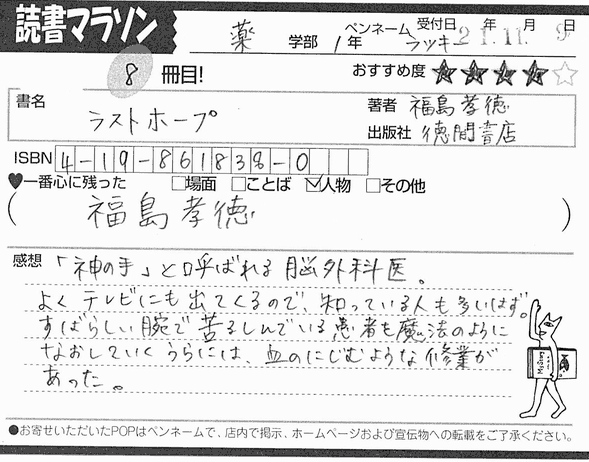 読書マラソン
薬 学部 1年 ペンネーム ラッキ 受付日 21年 11月 9日
8 冊目! おすすめ度 ★★★★☆
書名 ラストホープ
著者 福島孝徳
出版社 徳間書店
ISBN 4-19-861838-0
♥一番心に残った □場面 □ことば ☑人物 □その他
(福島孝徳)
感想 「神の手」と呼ばれる脳外科医。
よくテレビにも出てくるので、知っている人も多いはず。
すばらしい腕で苦るしんでいる患者を魔法のように
なおしていくうらには、血のにじむような修業が
あった。
●お寄せいただいたPOPはペンネームで、店内で掲示、ホームページおよび宣伝物への転載をご了承ください。